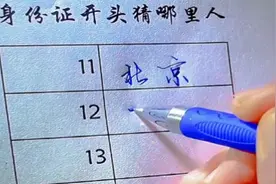 身份证开头猜哪里人
11 北京
12
13